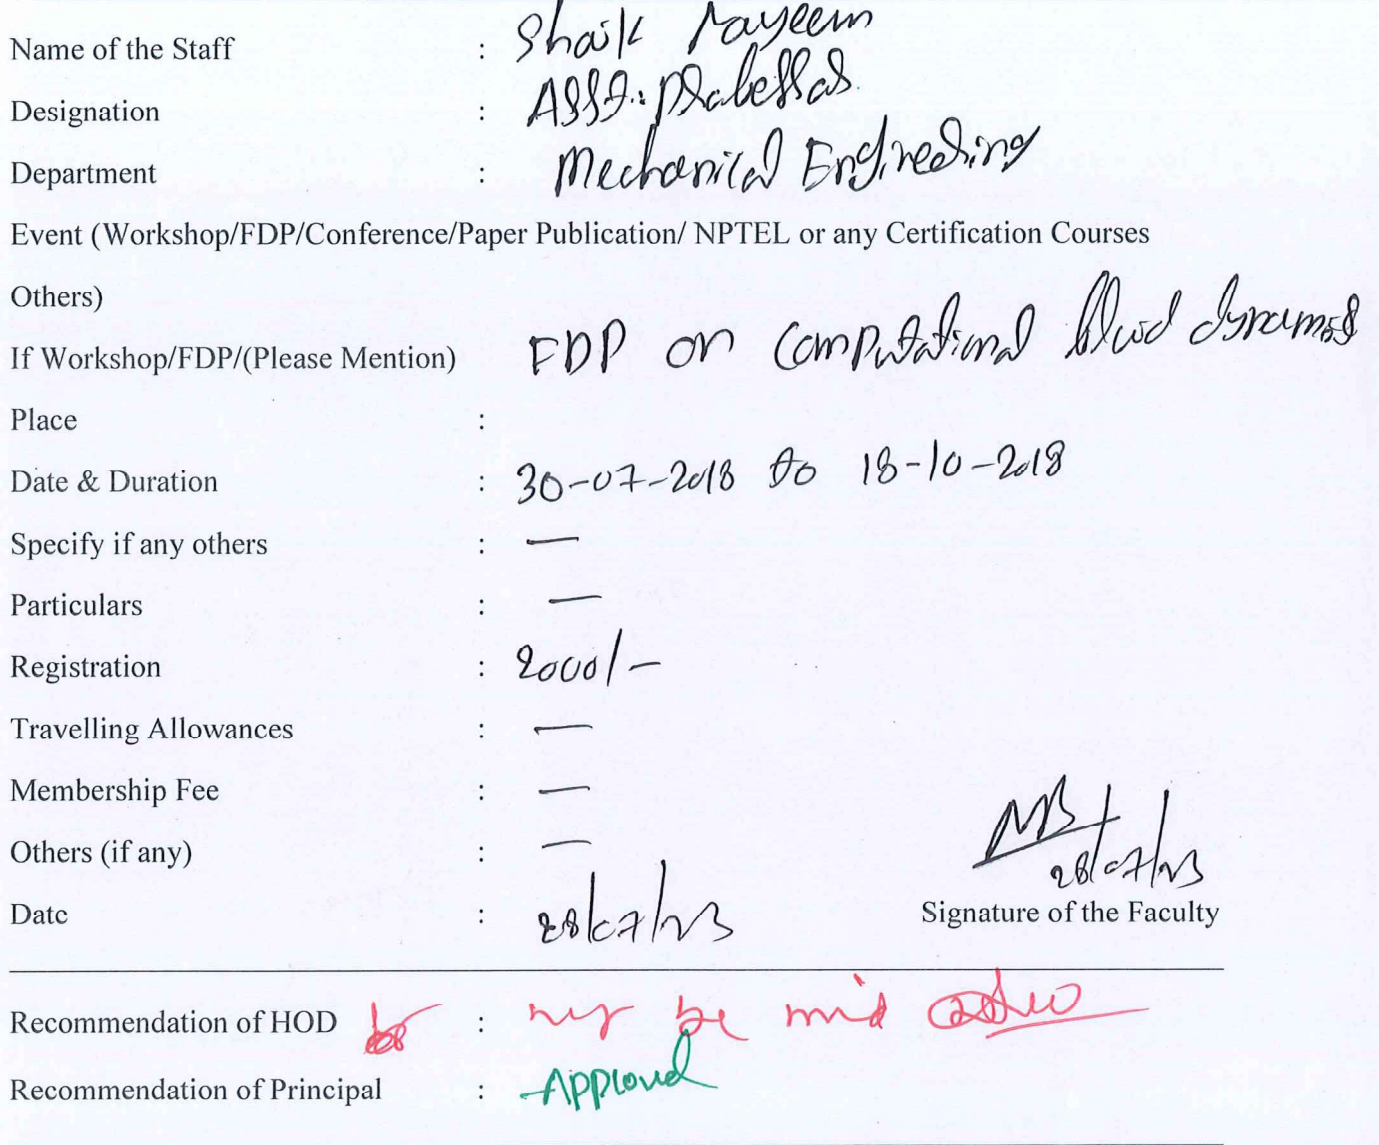 Name of the Staff : Shaik Nayeem
Designation : Asst. professor
Department : Mechanical Engineering
Event (Workshop/FDP/Conference/Paper Publication/ NPTEL or any Certification Courses
Others)
If Workshop/FDP/(Please Mention) FDP on Computational fluid dynamics
Place :
Date & Duration : 30-07-2018 to 18-10-2018
Specify if any others : —
Particulars : —
Registration : 2000/-
Travelling Allowances : —
Membership Fee : —
Others (if any) : —
28/07/23
Date : 28/07/23 Signature of the Faculty
Recommendation of HOD : be
Recommendation of Principal : Approved